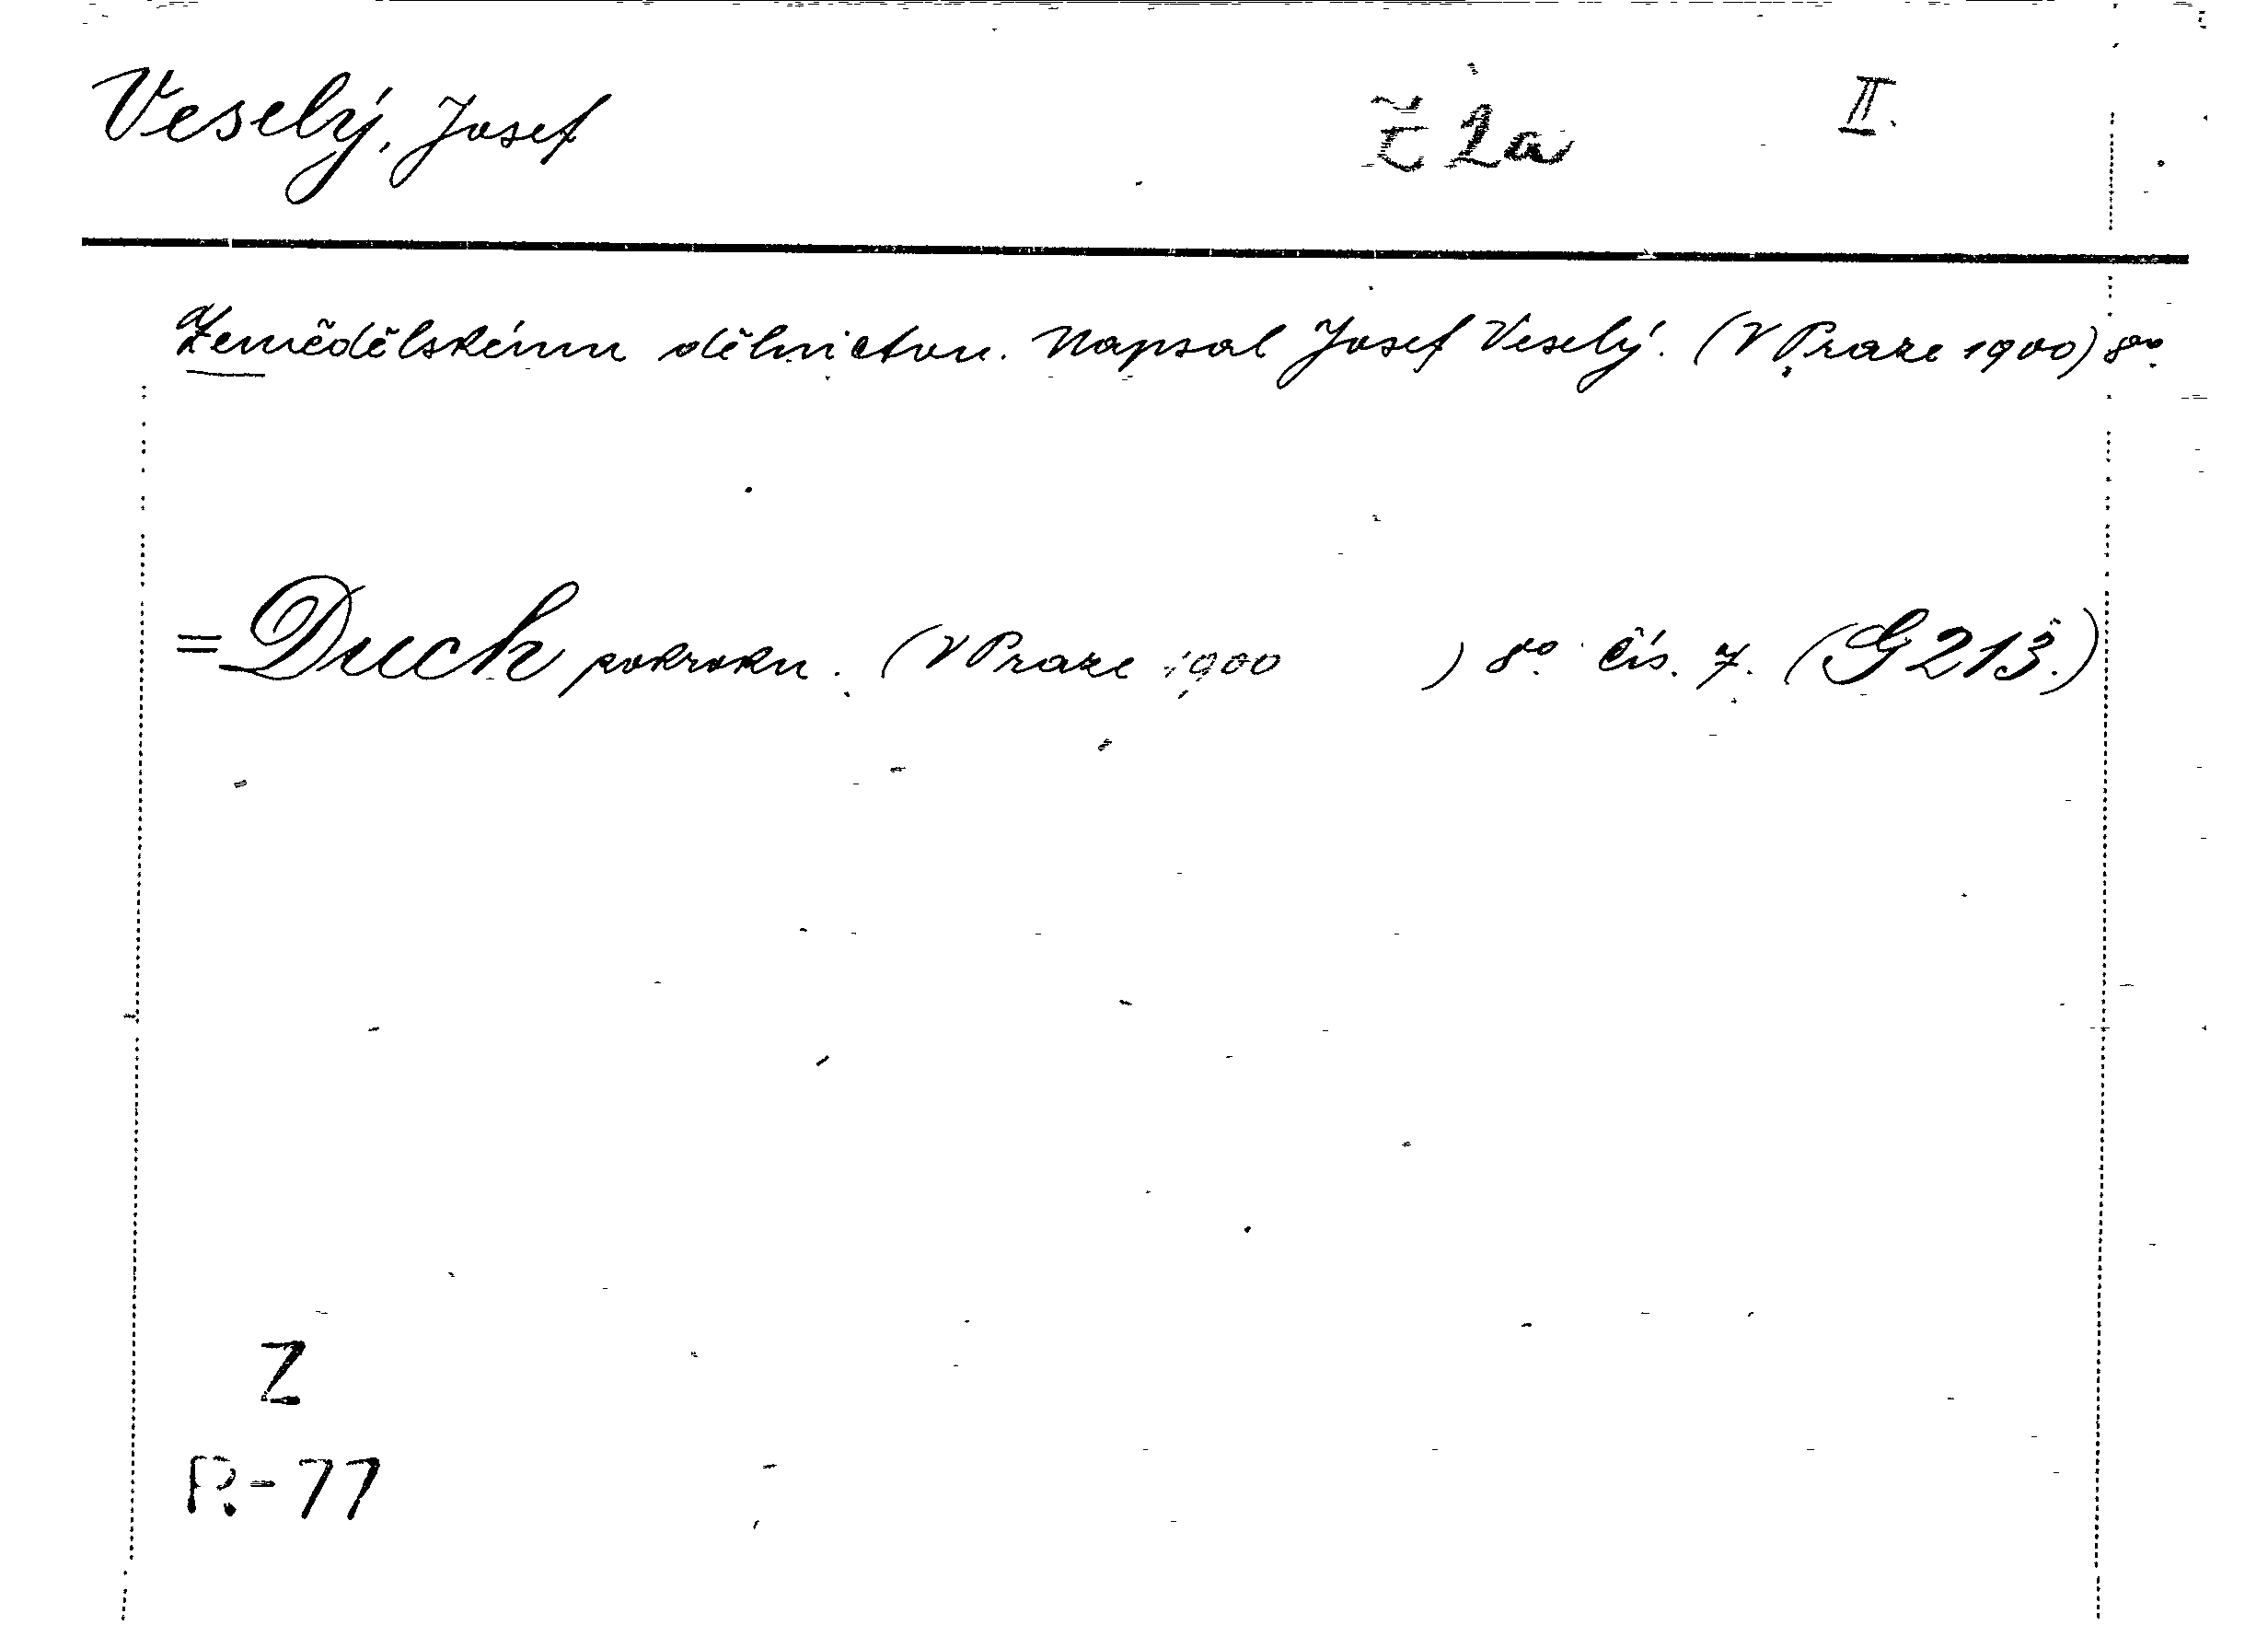 Veselý, Josef Ž 2a II.
Zemědělskému dělnictvu. Napsal Josef Veselý. (V Praze 1900) 8º.
= Duch pokroku. (V Praze 1900 ) 8º. čís. 7. (G 213.)
Z
R-77